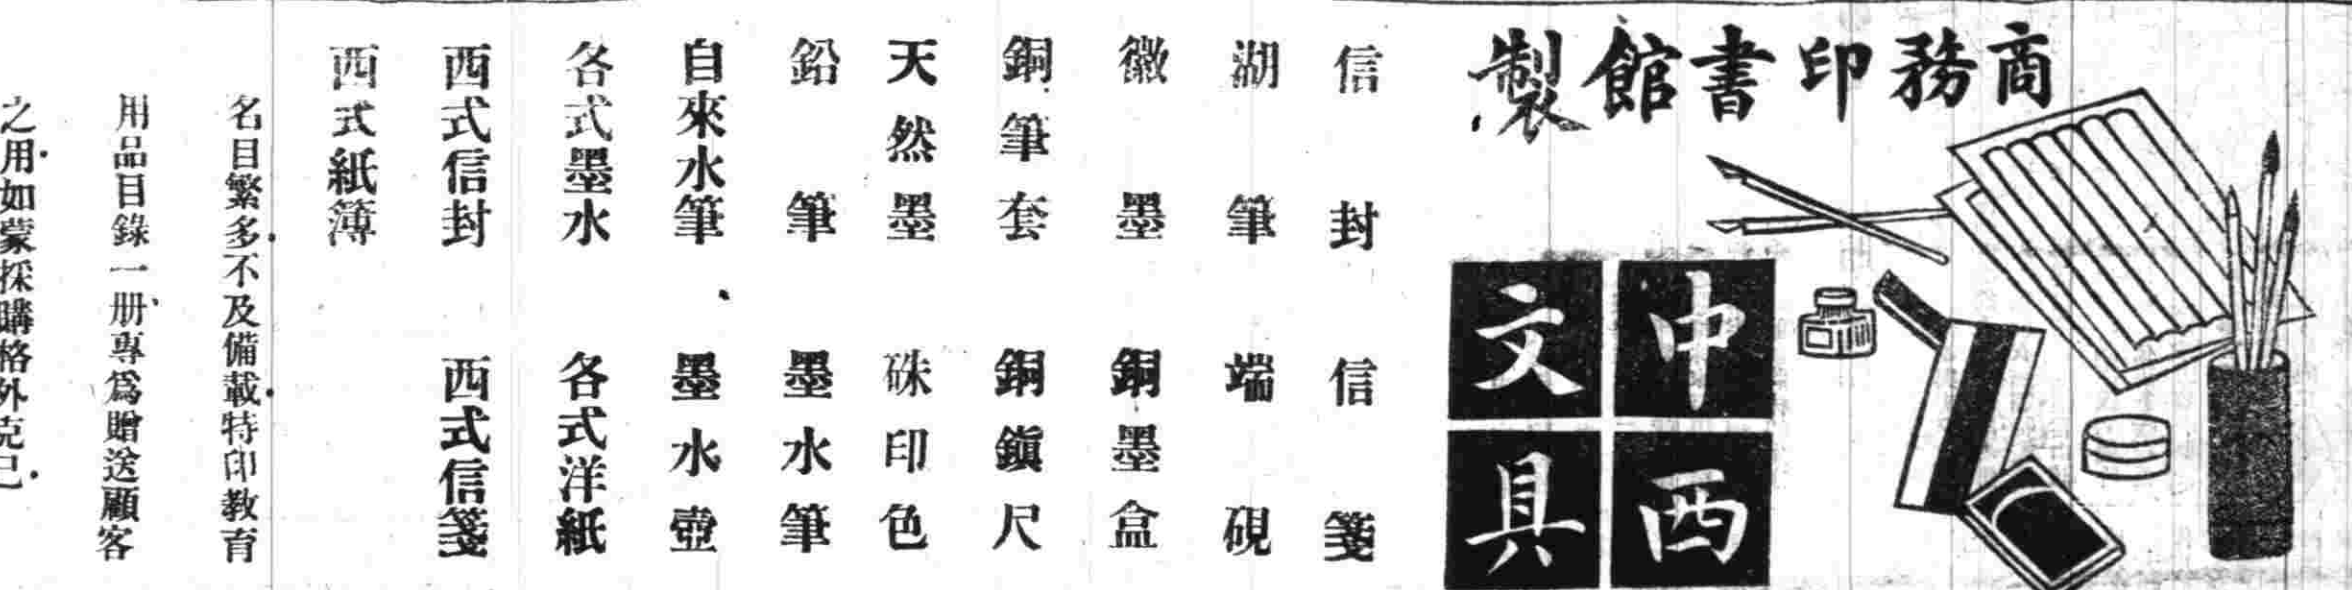 商務印書館製
中西
文具
信封 信箋
湖筆 端硯
徽墨 銅墨盒
銅筆套 銅鎮尺
天然墨 硃印色
鉛筆 墨水筆
自來水筆 墨水壺
各式墨水 各式洋紙
西式信封 西式信箋
西式紙簿
名目繁多不及備載特印教育
用品目錄一册專爲贈送顧客
之用如蒙採購格外克己